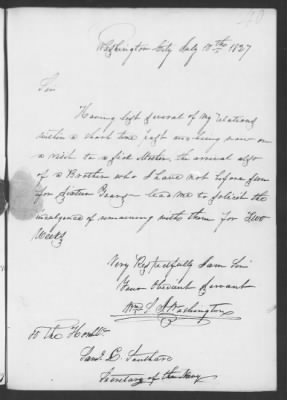 40
Washington City July 10th 1827
Sir
Having lost several of my relations
within a short time past and being now on
a visit to a sick Mother, the arrival also
of a Brother who I have not before seen
for sixteen Years lead me to solicit the
indulgence of remaining with them for two
Weeks
Very Respectfully I am Sir
Your Obedient Servant
Washington
To the Honble.
Saml. L. Southard
Secretary of the Navy